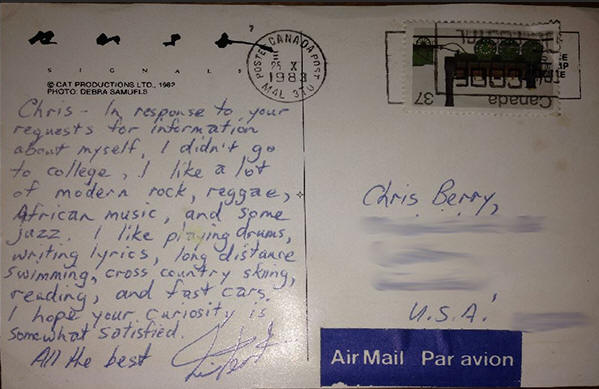 S I G N A L S
© CAT PRODUCTIONS LTD., 1982
PHOTO: DEBRA SAMUELS
POSTE CANADA POST
25 X
1983
M4L 3T0
37 Canada
Chris - In response to your
requests for information
about myself, I didn't go
to college, I like a lot
of modern rock, reggae,
African music, and some
jazz. I like playing drums,
writing lyrics, long distance
swimming, cross country skiing,
reading, and fast cars.
I hope your curiosity is
somewhat satisfied.
All the best
Chris Berry,
U.S.A.
Air Mail Par avion